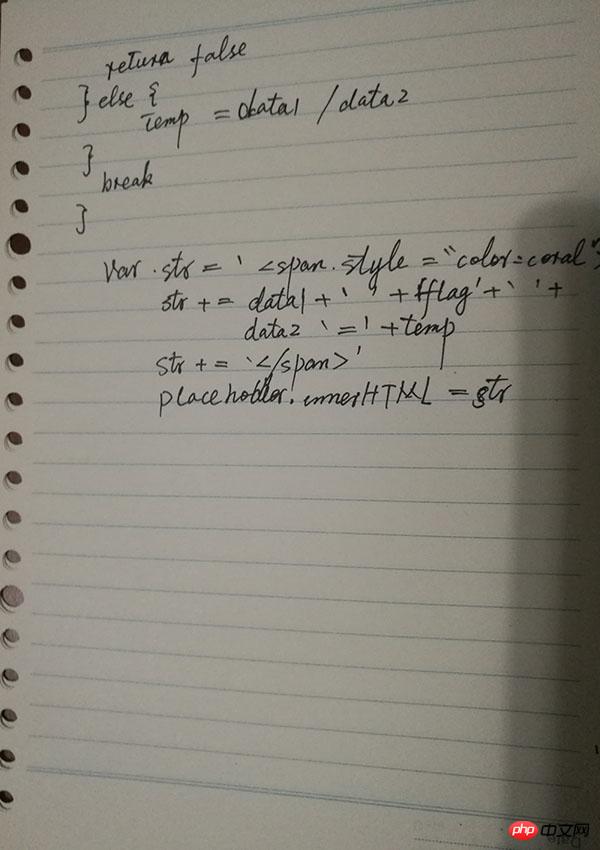 return false
} else {
temp = data1 / data2
}
break
}
var str = ' <span style = "color=coral">
str += data1 + ' ' + fflag' + ' ' +
data2 '=' + temp
str += '</span>'
placeholder.innerHTML = str
php 中文网
Date